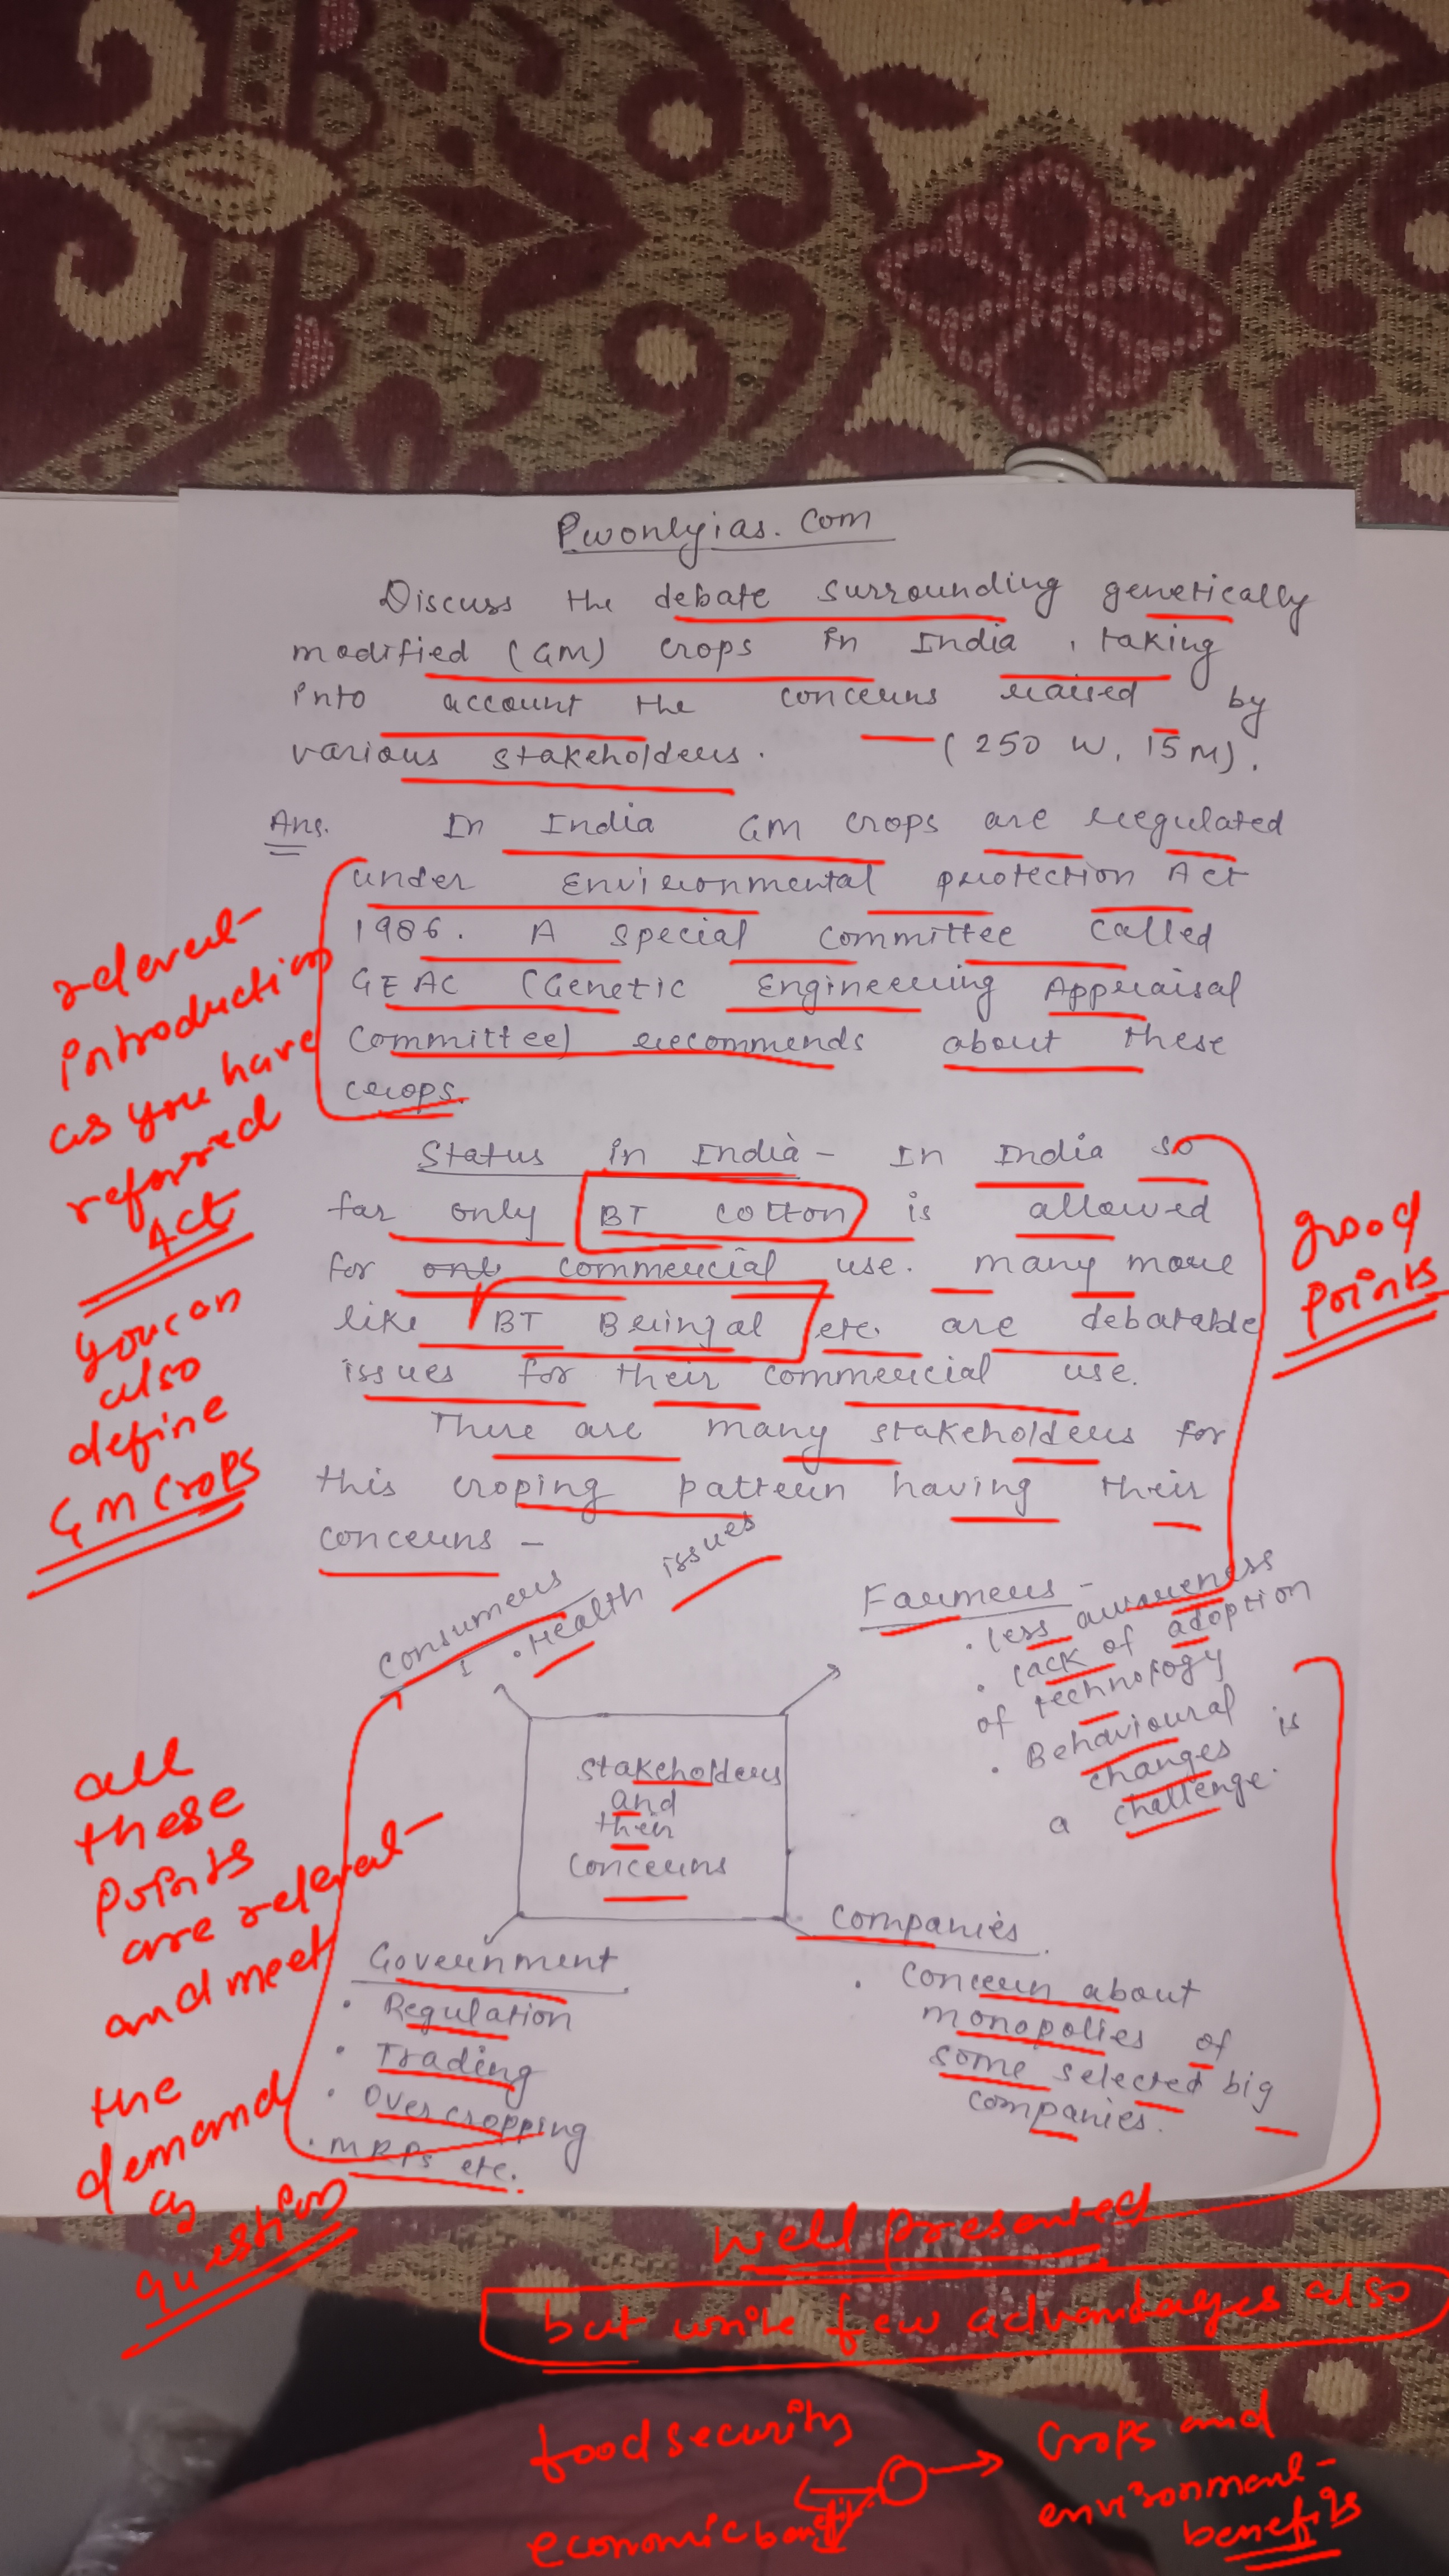 Pwonlyias.com
Discuss the debate surrounding genetically
modified (GM) crops in India, taking
into account the concerns raised by
various stakeholders. (250 W, 15M).
Ans. In India GM crops are regulated
under Environmental protection Act
1986. A special committee called
GEAC (Genetic Engineering Appraisal
Committee) recommends about these
crops.
relevent
introduction
as you have
referred
Act
you can
also
define
GM Crops
Status in India - In India so
far only BT cotton is allowed
for commercial use. many more
like BT Beringal etc. are debatable
issues for their commercial use.
There are many stakeholders for
this croping pattern having their
concerns -
good
points
Consumers
• Health issues
Farmers -
• less awareness
• lack of adoption
of technology
• Behavioural
changes is
a challenge.
Stakeholders
and
their
concerns
Government
• Regulation
• Trading
• Over cropping
• MRPs etc.
Companies
• Concern about
monopolies of
some selected big
companies.
all
these
points
are relevat
and meet
the
demand
as
question
well presented
but write few advantages also
food security
economic benefit
Crops and
environment
benefits